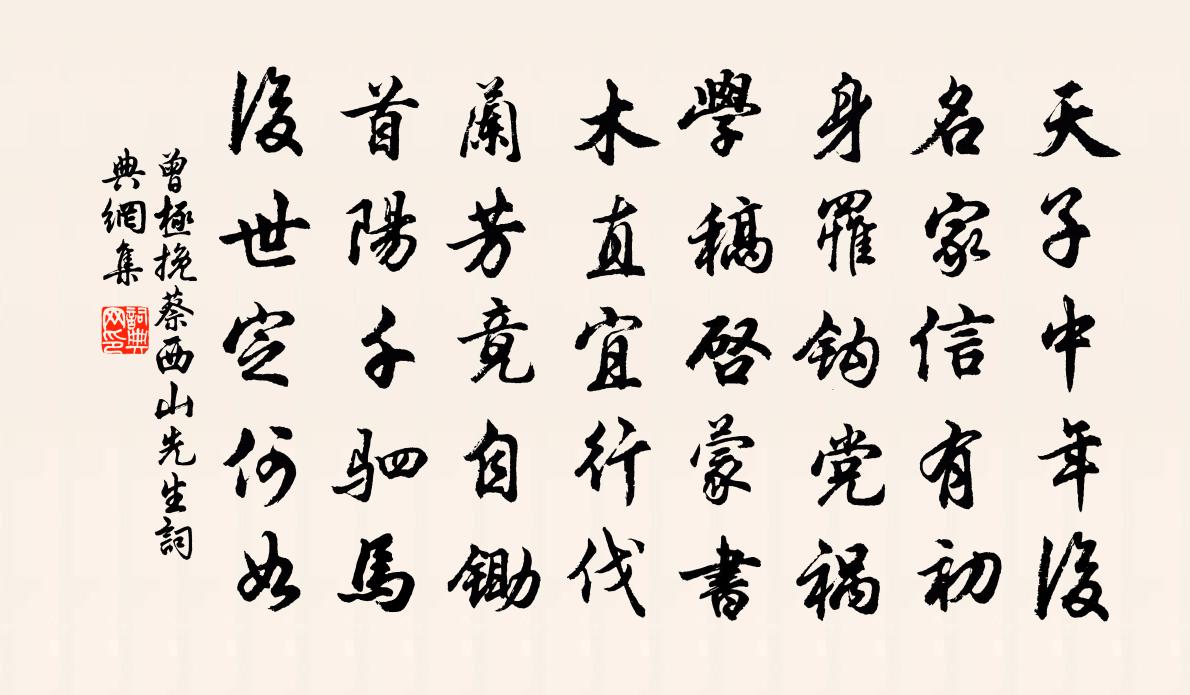 天子中年後
名家信有初
身羅鈎党祸
學稿啓蒙書
木直宜行伐
蘭芳竟自鋤
首陽千驷馬
後世定何如
曾極挽蔡西山先生詞
典網集
詞典网印